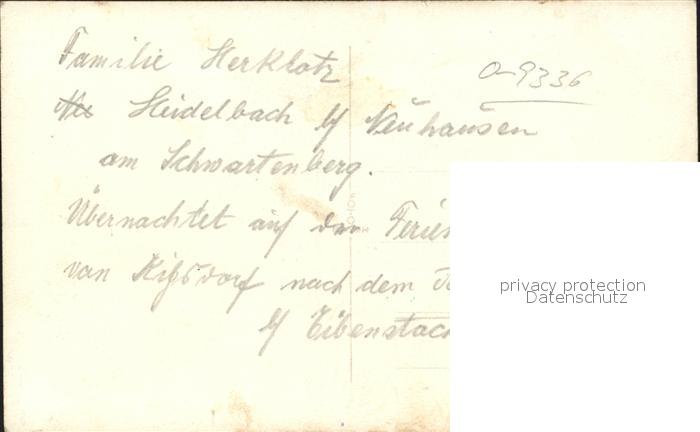 Familie Herklotz
O-9336
Heidelbach b/ Neuhausen
am Schwartenberg.
Übernachtet auf der Ferien
von Kipsdorf nach dem
b/ Eibenstoc
privacy protection
Datenschutz